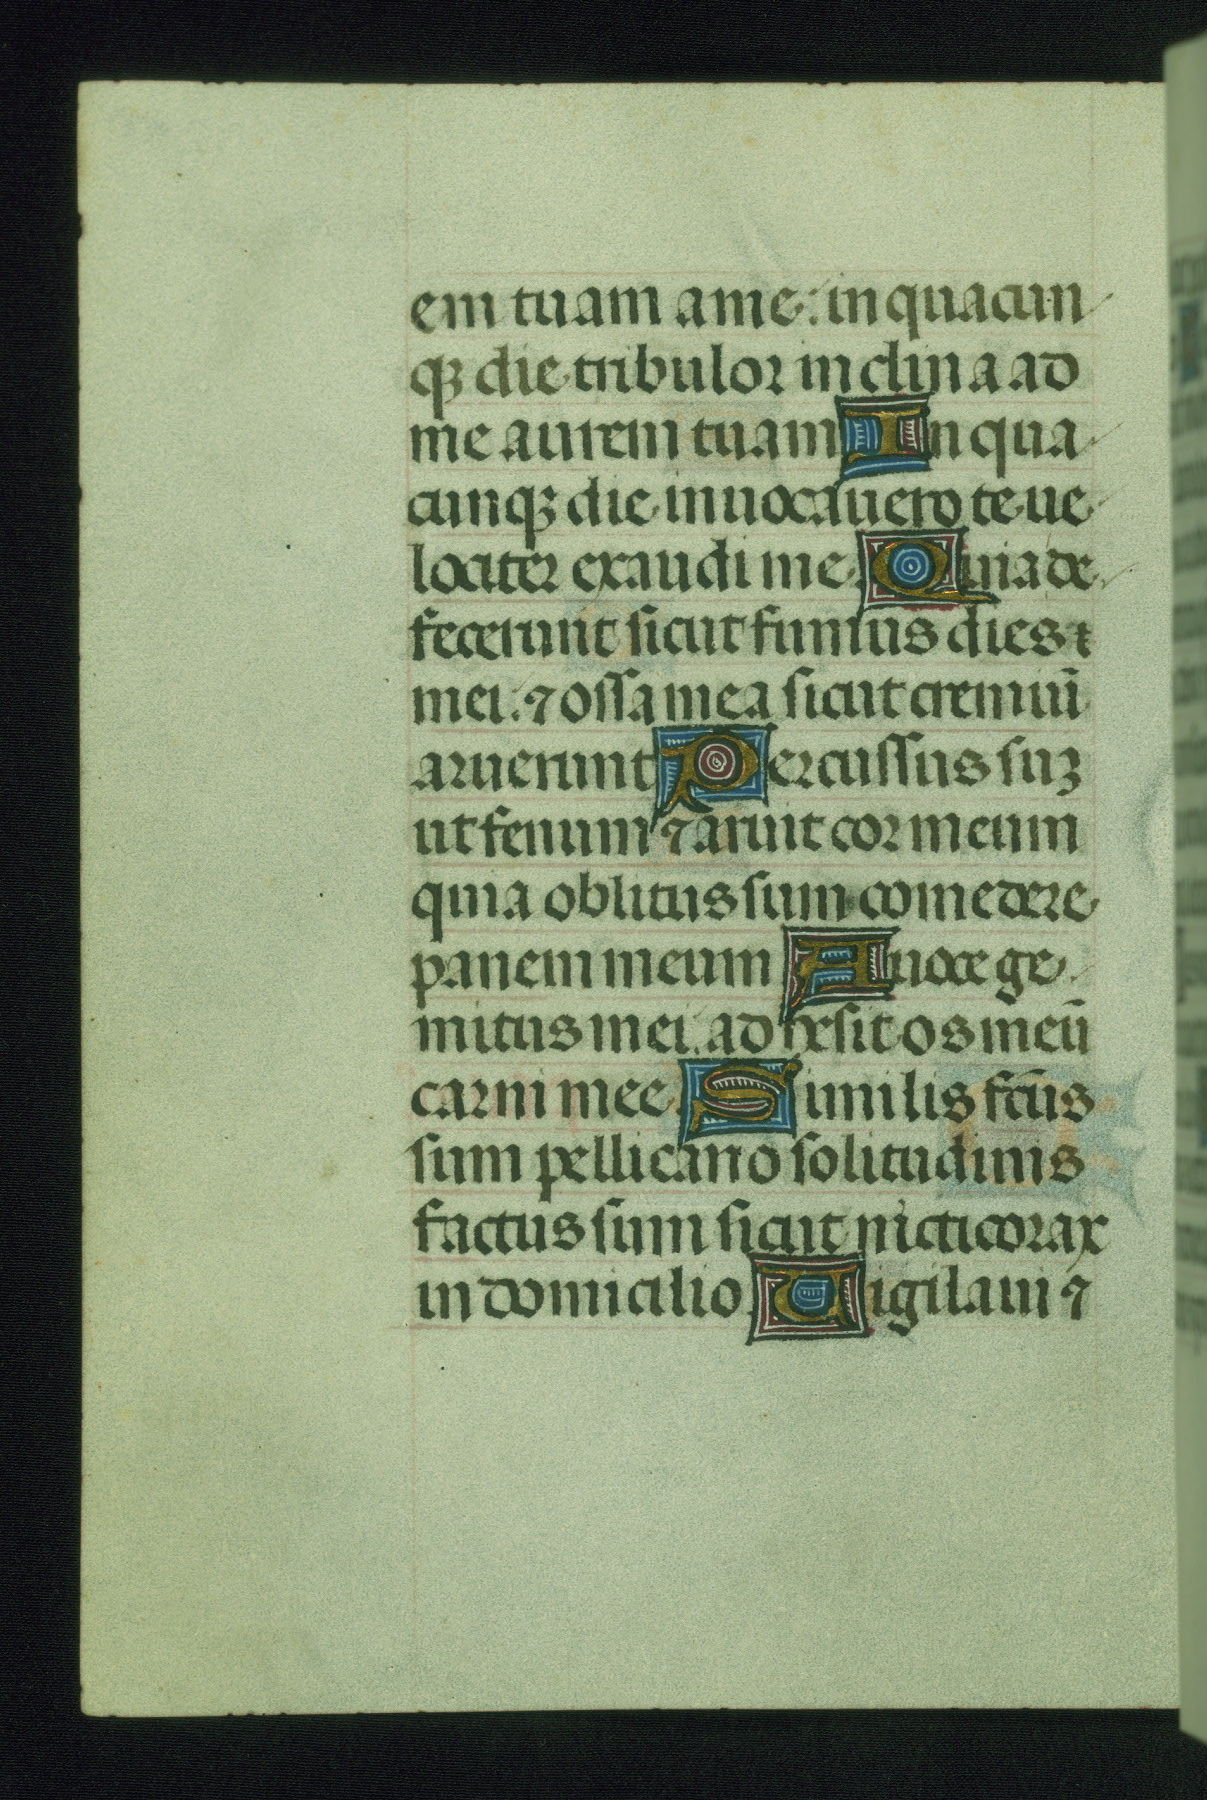 em tuam a me: in quacun
qꝫ die tribulor inclina ad
me aurem tuam In qua
cunqꝫ die inuocauero te ue
lociter exaudi me. Quia de
fecerunt sicut fumus dies
mei: ⁊ ossa mea sicut cremiū
aruerunt Percussus suꝫ
ut fenum ⁊ aruit cor meum
quia oblitus sum comedere
panem meum A uoce ge
mitus mei. adhesit os meū
carni mee. Similis fc̄us
sum pellicano solitudinis
factus sum sicut nicticorax
in domicilio. Uigilaui ⁊